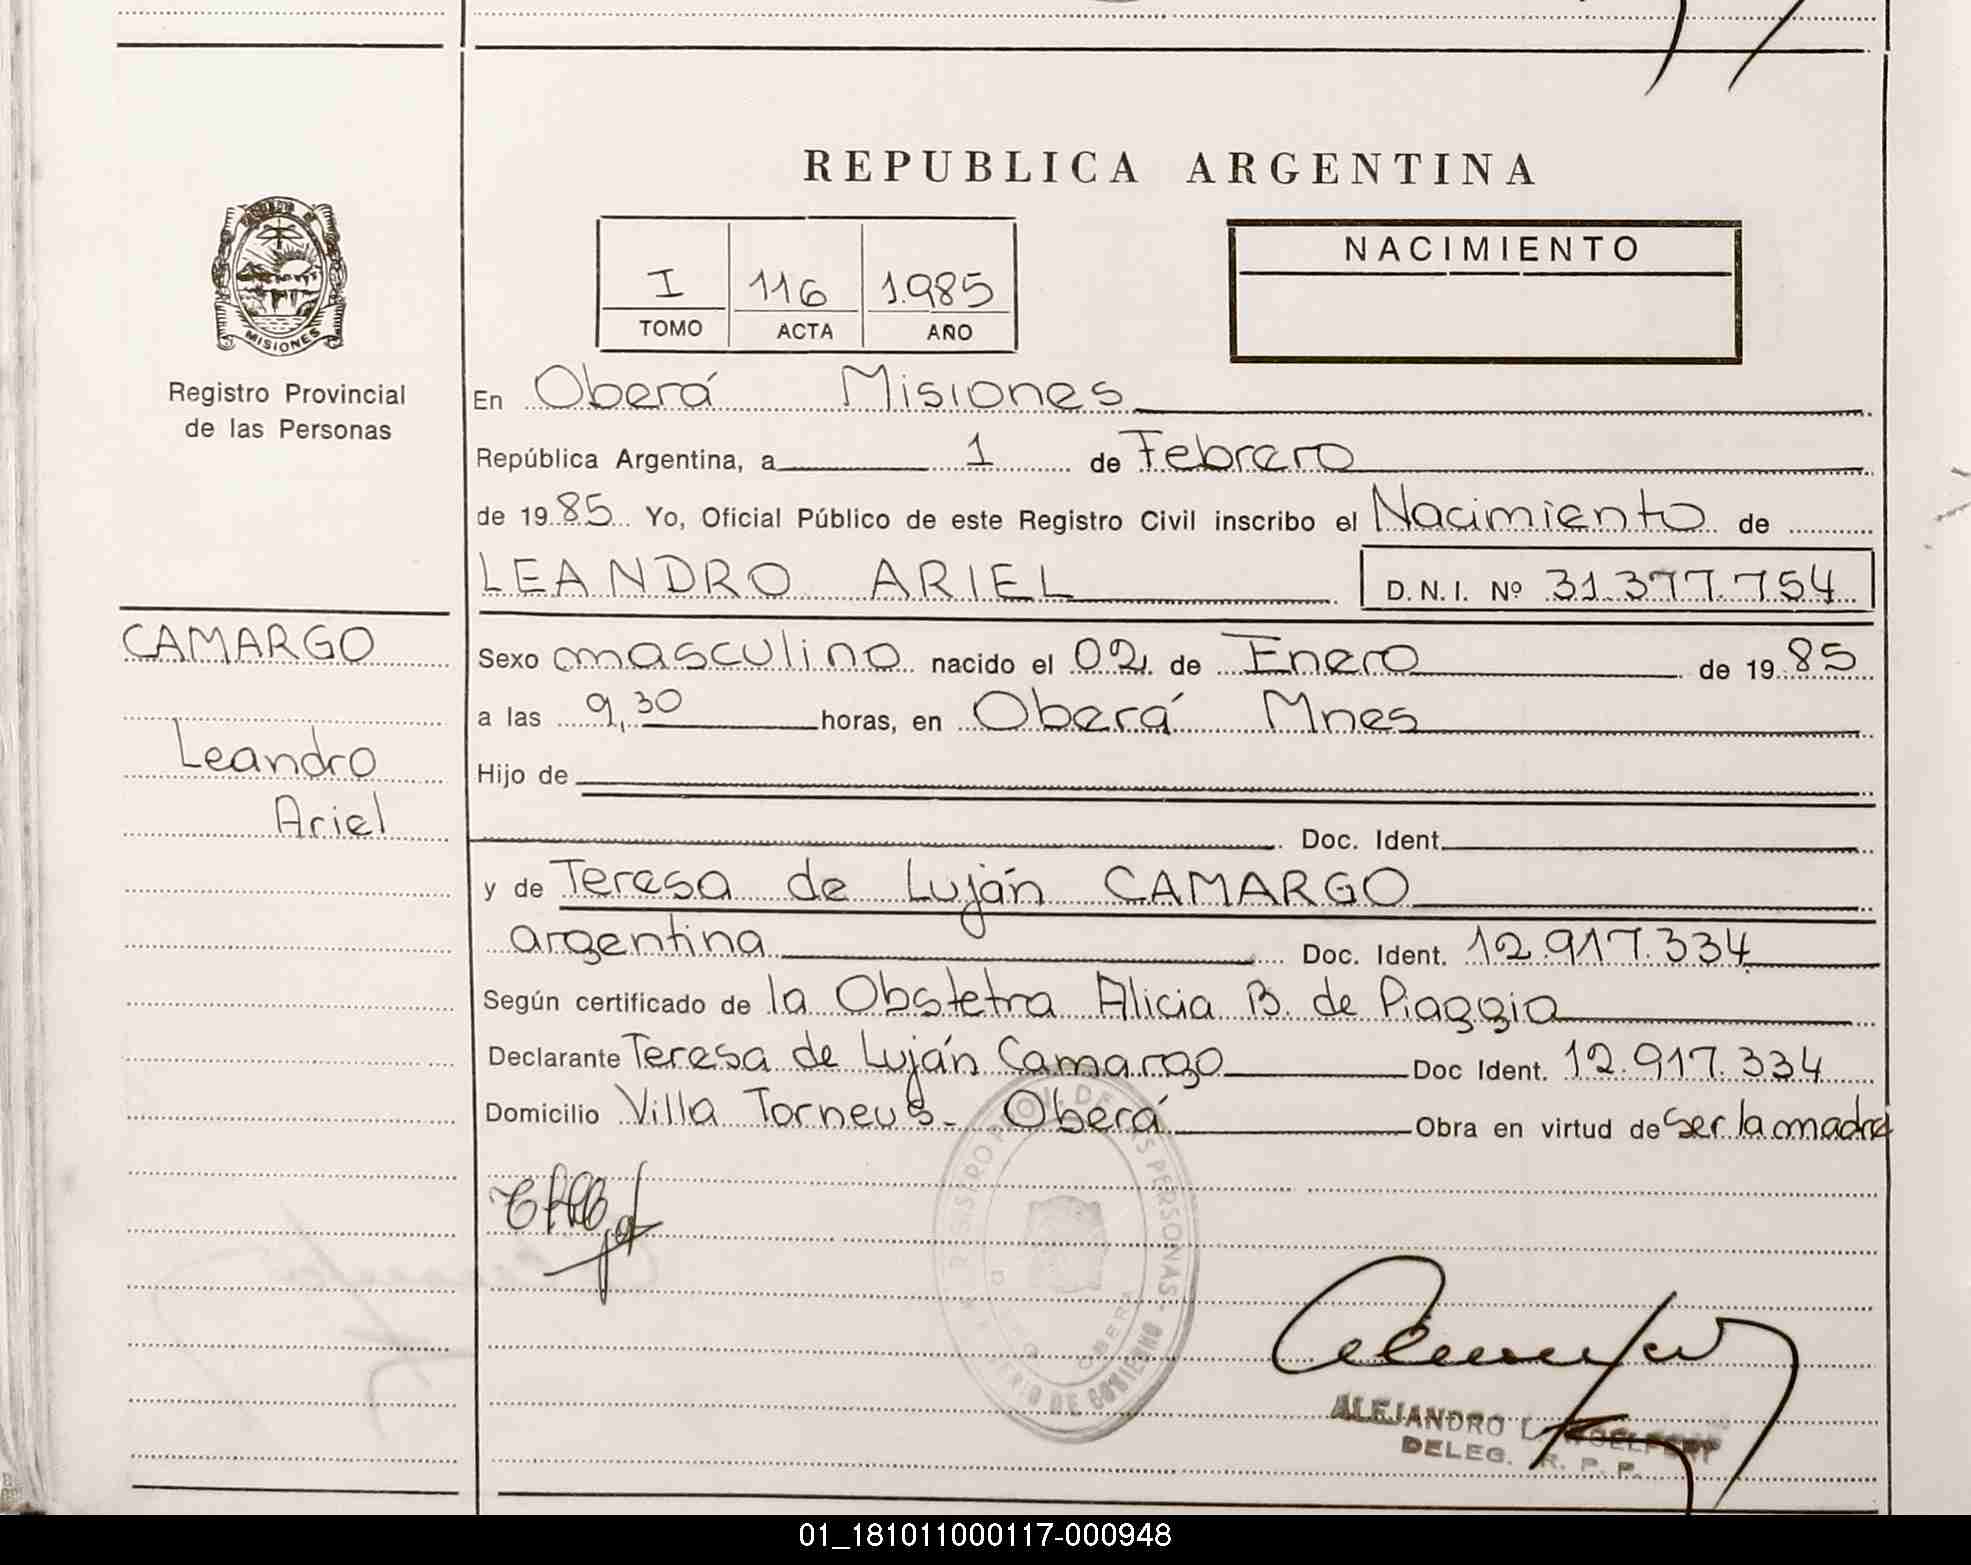 REPUBLICA ARGENTINA
NACIMIENTO
I 116 1.985
TOMO ACTA AÑO
MISIONES
Registro Provincial
de las Personas
En Oberá Misiones
República Argentina, a 1 de Febrero
de 1985 Yo, Oficial Público de este Registro Civil inscribo el Nacimiento de
LEANDRO ARIEL D.N.I. Nº 31.377.754
CAMARGO
Leandro
Ariel
Sexo masculino nacido el 02 de Enero de 1985
a las 9,30 horas, en Oberá Mnes
Hijo de
Doc. Ident.
y de Teresa de Luján CAMARGO
argentina Doc. Ident. 12.917.334
Según certificado de la Obstetra Alicia B. de Piaggio
Declarante Teresa de Luján Camargo Doc Ident. 12.917.334
Domicilio Villa Torneus - Oberá Obra en virtud de ser la madre
REGISTRO PROV. DE LAS PERSONAS
OBERA
DE GOBIERNO
ALEJANDRO L.
DELEG. R. P. P.
01_181011000117-000948